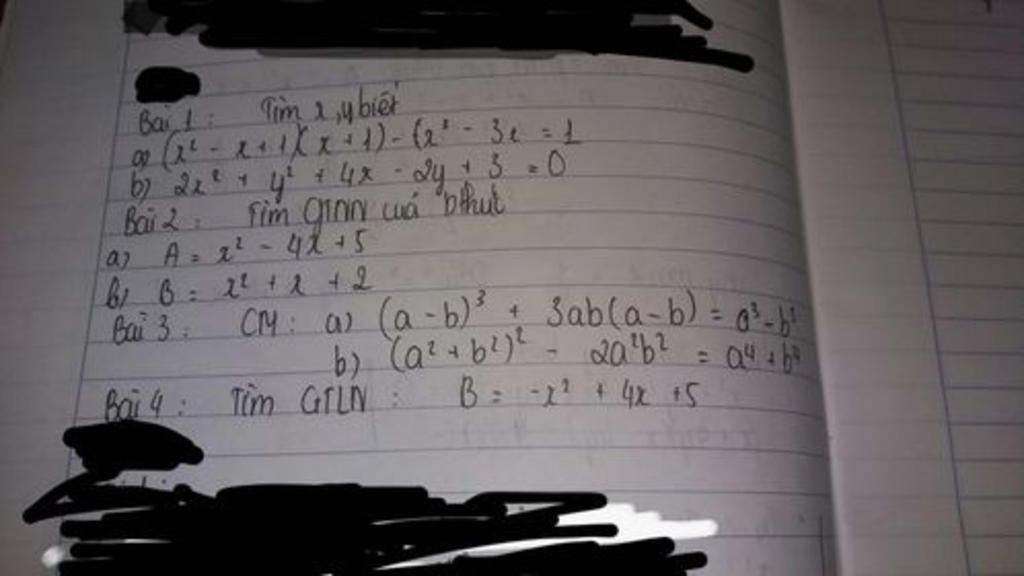 Bài 1 : Tìm x, y biết
a) (x² - x + 1)(x + 1) - (x³ - 3x = 1
b) 2x² + y² + 4x - 2y + 3 = 0
Bài 2 : Tìm GTNN cuả bthưt
a) A = x² - 4x + 5
b) B = x² + x + 2
Bài 3 : CM : a) (a - b)³ + 3ab(a - b) = a³ - b³
b) (a² + b²)² - 2a²b² = a⁴ + b⁴
Bài 4 : Tìm GTLN : B = -x² + 4x + 5